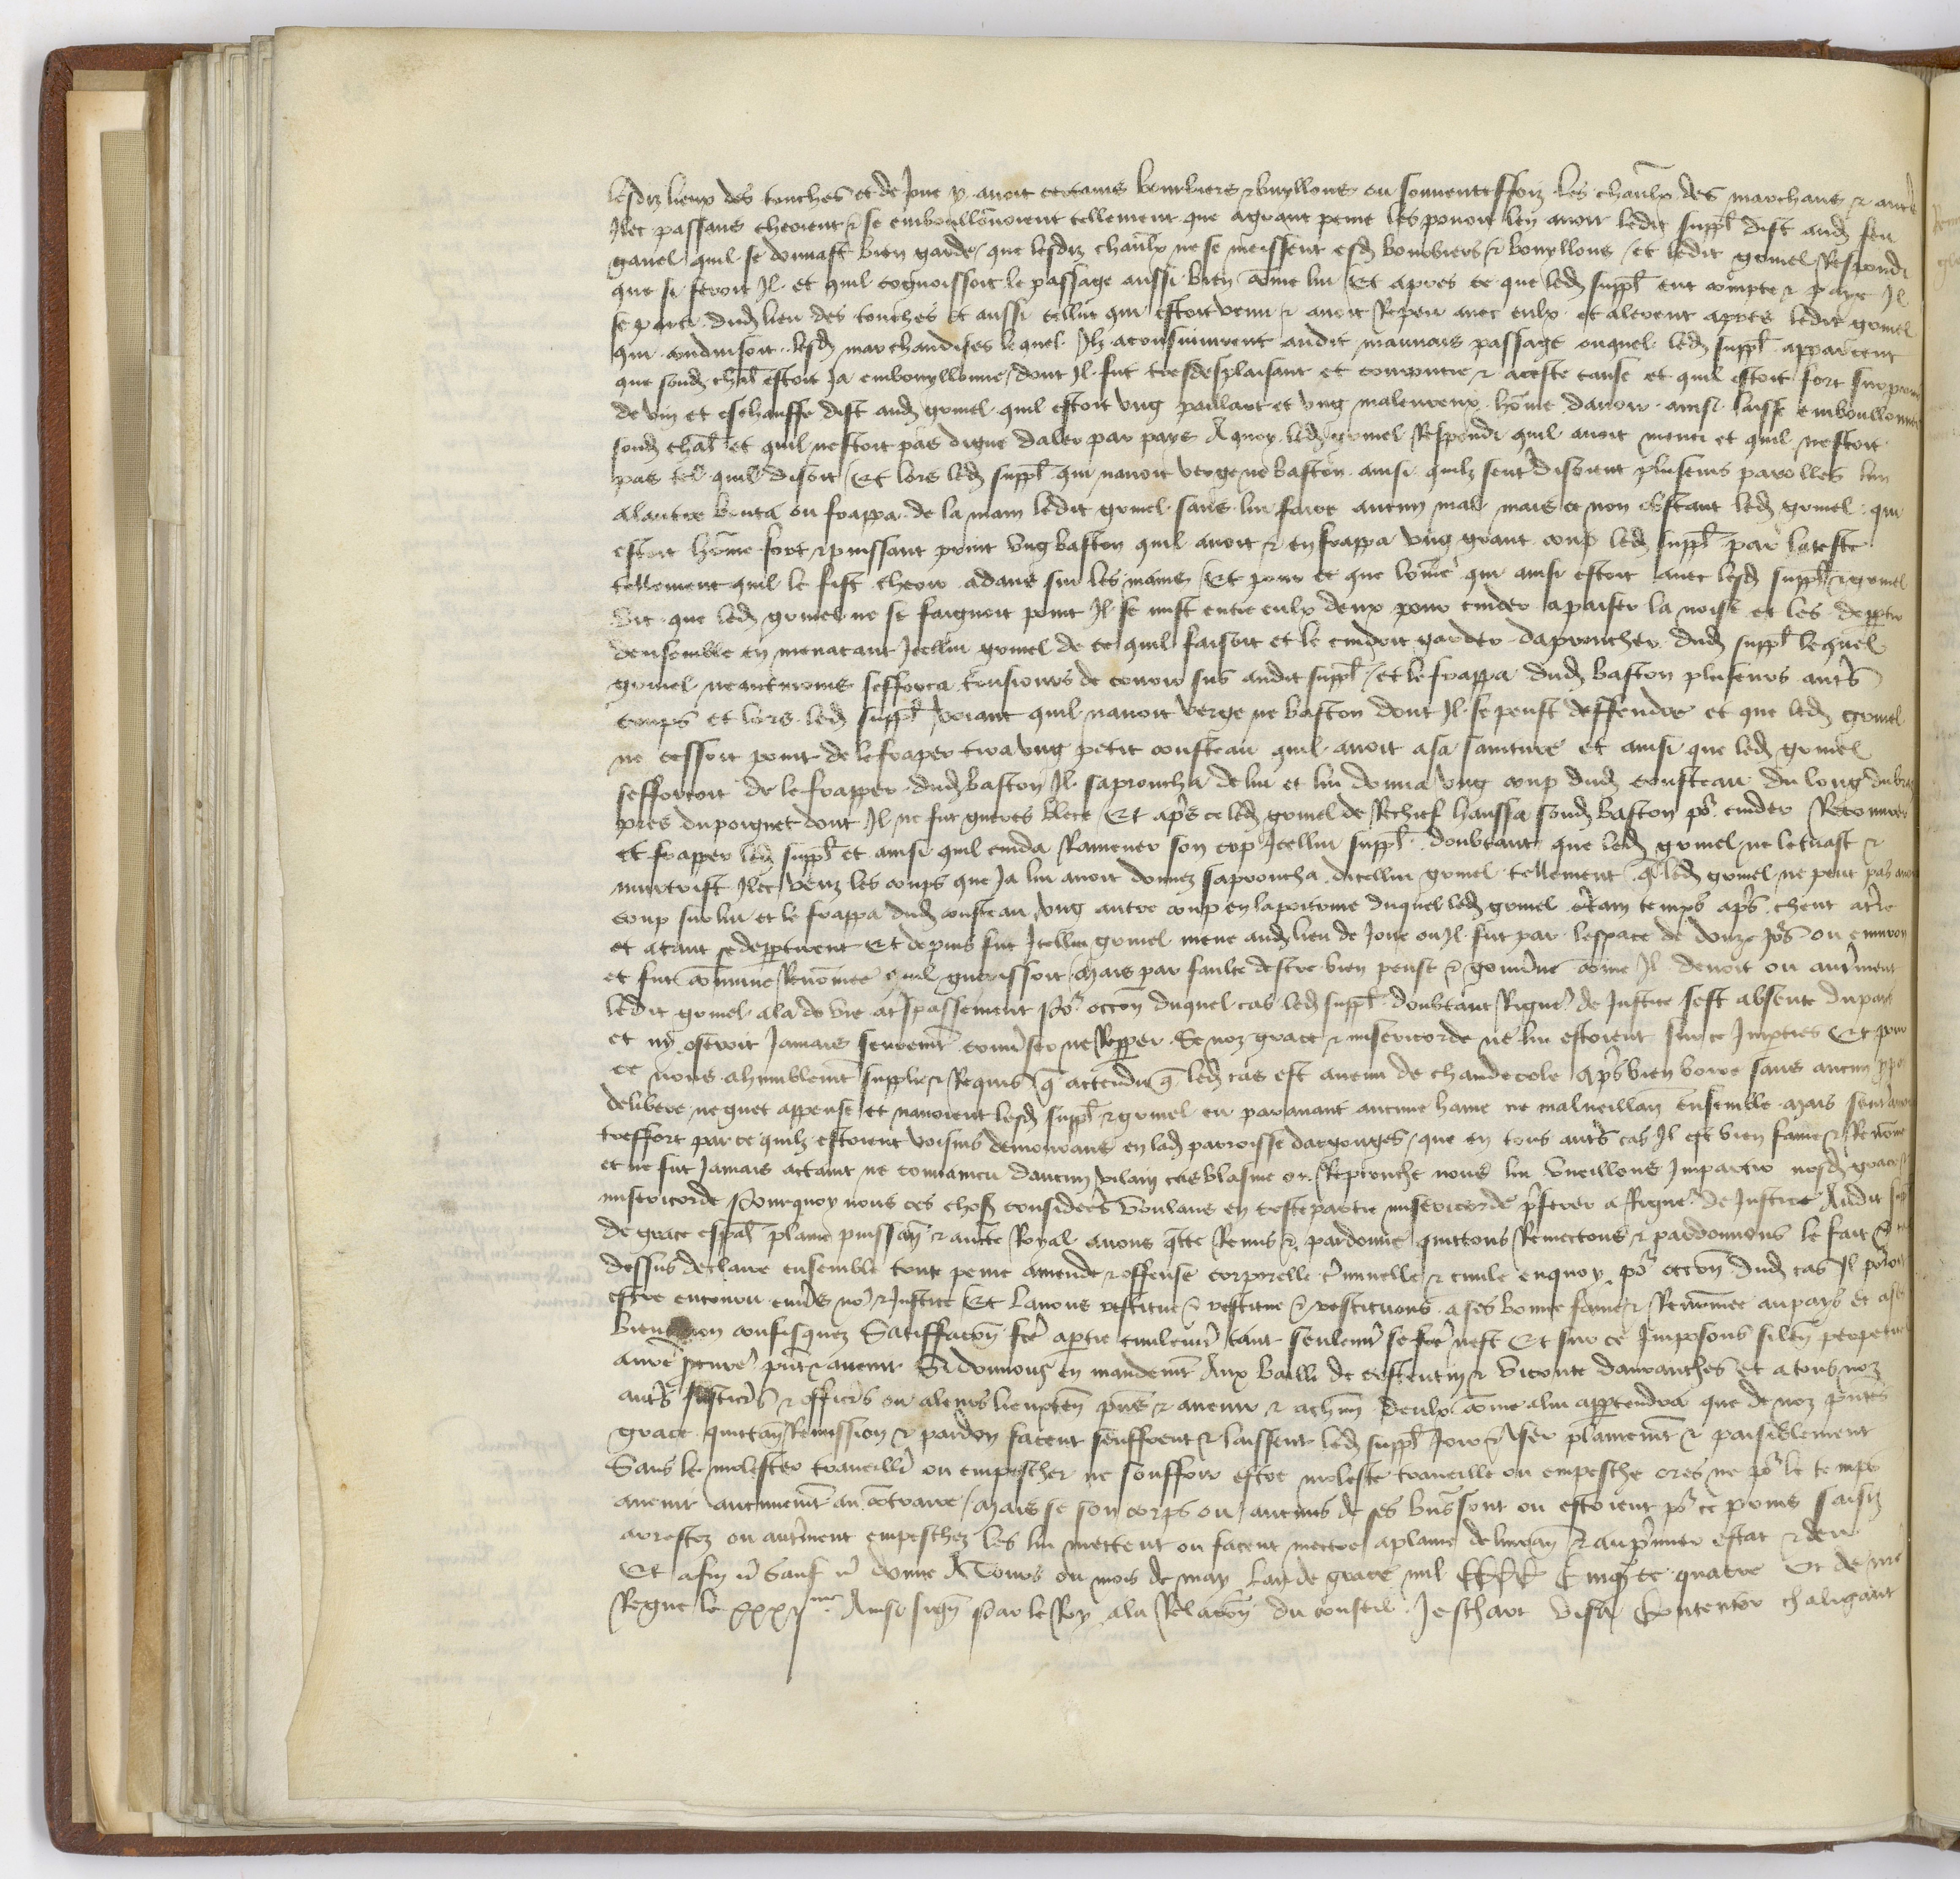 lesdiz lieux des touches et de Joue y auoit certains bourbiers & bouyllons ou souuenteffoiz les chaulx des marchans &
Ilec passans cheoient & se emboullonnoient tellement que agrant peine les pouoit len auoir ledit suppl dist aud feu
gruel quil se donnast bien garde que lesdiz chaulx ne se meissent esd bourbiers & bouyllons et ledit gruel Respondi
que si feroit Il et quil cognoissoit le passage aussi bien come lui Et apres ce que led suppl eut compte & paye Il
se parti dud lieu des touches et aussi cellui qui estoit venu & auoit Repeu auec eulx et alerent apres ledit gruel
qui conduisoit lesd marchandises lequel Ilz aconsuiuirent audit mauuais passage ouquel led suppl apparceut
que sond chal estoit Ja embouyllonne dont Il fut tresdesplaisant et courrucie & aceste cause et quil estoit fort surprins
de vin et eschauffe dist aud gruel quil estoit vng paillart et vng maleureux home dauoir ainsi laisse emboullonner
sond chal et quil nestoit pas digne daler par pays Aquoy led gruel Respondi quil auoit menti et quil nestoit
pas tel quil disoit Et lors led suppl qui nauoit verge ne baston ainsi quilz sentdisoient pluseurs parolles lun
alautre bouta ou frappa de la main ledit gruel sans lui faire aucun mal mais ce non obstant led gruel qui
estoit home fort & puissant print vng baston quil auoit & en frappa vng grant coup led suppl par lateste
tellement quil le fist cheoir adans sur les mains Et pour ce que lome qui ainsi estoit auec lesd suppl & gruel
vit que led gruel ne se faignoit point Il se mist entre eulx deux pour cuider apaiser la noise et les deptir
densemble en menacant Icellui gruel de ce quil faisoit et le cuidoit garder daproucher dud suppl lequel
gruel neantmoins sefforca tousiours de courir sus audit suppl et le frappa dud baston pluseurs autrs
coups et lors led suppl voiant quil nauoit verge ne baston dont Il se peust deffendre et que led gruel
ne cessoit point de le fraper tira vng petit cousteau quil auoit asa sainture et ainsi que led gruel
sefforcoit de le frapper dud baston Il saproucha de lui et lui donna vng coup dud cousteau du long du bras
pres du poignet dont Il ne fut gueres blece Et apres ce led gruel de Rechief haussa sond baston por cuider Recouurer
et frapper led suppl et ainsi quil cuida Ramener son cop Icellui suppl doubtant que led gruel ne le tuast &
murtrist Ilec veuz les coups que Ja lui auoit donnez saproucha dicellui gruel tellement q led gruel ne peut pas
coup sur lui et le frappa dud cousteau vng autre coup en lapoitrine duquel led gruel certain temps aprs cheut atrre
et atant se deptirent Et depuis fut Icellui gruel mene aud lieu de Joue ou Il fut par lespace de douze jors ou enuiron
et fut comune Renomee quil guerissoit mais par faulte destre bien pense & gouuerne come Il deuoit ou autrment
ledit gruel ala de vie atrspassement Por occon duquel cas led suppl doubtant Riguer de Justice sest absente du pais
et ny oseroit Jamais seuremt conuerser ne Repper Se noz grace & misericorde ne lui estoient sur ce Impties Et pour
ce nous ahumblemt supplie & Requis q attendu q led cas est auenu de chaudecole aprs bien boire sans aucun ppos
delibere ne guet appense et nauoient lesd suppl & gruel eu parauant aucune haine ne malueillan ensemble mais
treffort par ce quilz estoient voisins demourans en lad parroisse dargouges que en tous autrs cas Il est bien fame & Renome
et ne fut Jamais attaint ne conuaincu daucun vilain cas blasme ou Reprouche nous lui vueillons Impartir nosd grace &
misericorde Pourquoy nous ces chos considerees voulans en ceste partie misericorde prferer a Riguer de Justice Audit suppl
de grace espal plaine puissan & aucte Royal auons qtte Remis & pardonne quittons Remectons & pardonnons le fait &
dessus declaire ensemble toute peine amende & offense corporelle criminelle & ciuile enquoy por occon dud cas Il porroit
estre encouru enuers no & Justice Et lauons restitue & restitue & restituons a ses bonne fame & Renomee au pays et ases
biens non confisquez Satisffacon fte aptie ciuilemt tant seulemt se fte nest Et sur ce Imposons silen perpetuel
anre procur prnt & auenir Si donnons en mandemt Aux bailli de costentin & viconte dauranches et a tous noz
autrs Justicirs & officirs ou aleurs lieuxten prns & auenir & achun deulx come alui appartendra que de noz prntes
grace quittan Remission & pardon facent seuffrent & laissent led suppl Joir & user plainemt & paisiblement
Sans le molester trauaillr ou empescher ne souffrir estre moleste trauaille ou empesche ores ne por le temps
auenir aucunemt au contraire mais se son corps ou aucuns de ses biens sont ou estoient por ce prins saisiz
arrestez ou autrment empeschez les lui mettent ou facent mettre aplaine deliuran & au premier estat & deu
Et afin &c Sauf &c donne A Tours ou mois de may lan de grace mil CCCC Cinqte quatre Et de nre
Regne le XXXIIme Ainsi sign Par le Roy ala Relacon du conseil Jeschart Visa Contentor Chaligaut